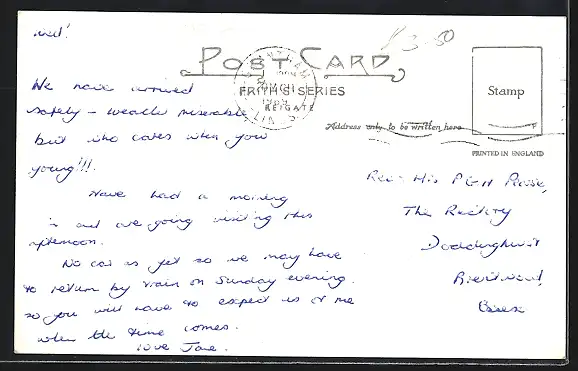 wed!
£3-50
POST CARD
We have arrived
safely - weather miserable
FRITH SERIES
REIGATE
Stamp
but who cares when your
young!!!
Address only to be written here
PRINTED IN ENGLAND
Have had a morning
in and are going visiting this
afternoon.
No car as yet so we may have
to return by train on Sunday evening.
so you will have to expect us at me
when the time comes.
love Jane.
The Rectory
Doddinghurst
Brentwood,
Essex